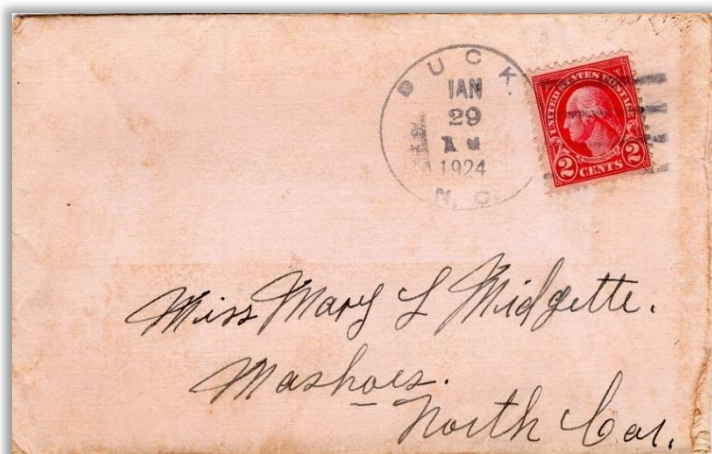 DUCK.
JAN
29
1924
N. C.
UNITED STATES POSTAGE
2 CENTS 2
Miss Mary L Midgette.
Mashoes.
North Car.